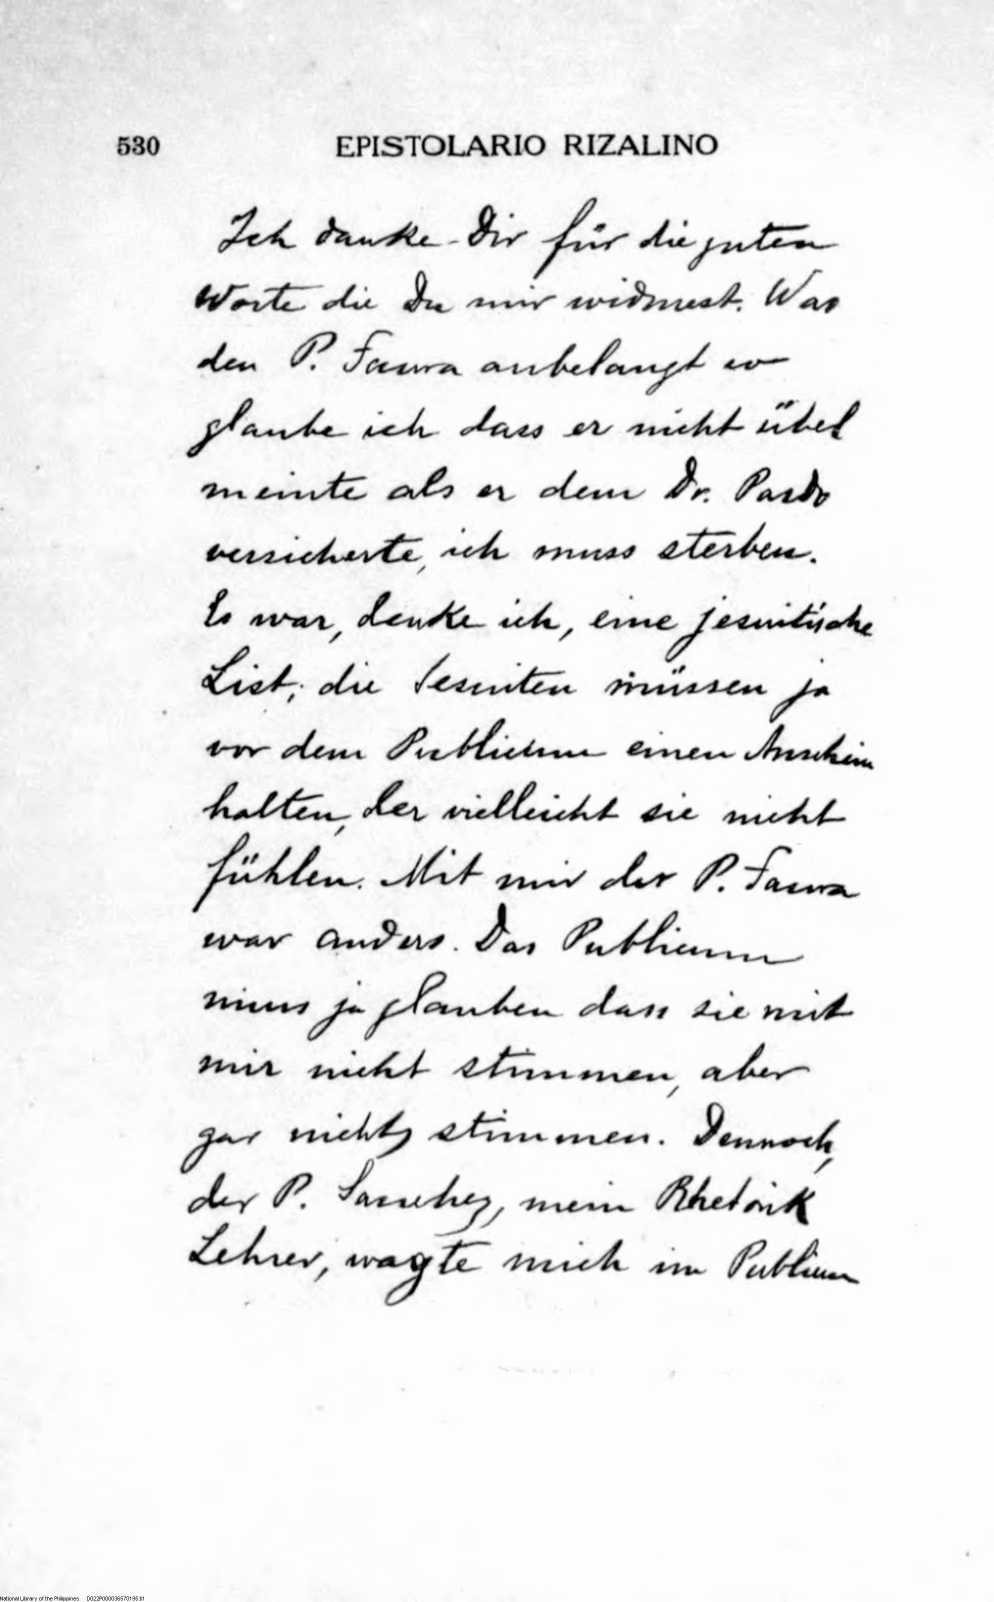 530 EPISTOLARIO RIZALINO
Ich danke Dir für die guten
Worte die Du mir widmest. Was
den P. Faura anbelangt so
glaube ich dass er nicht übel
meinte als er dem Dr. Pardo
versicherte, ich muss sterben.
Es war, denke ich, eine jesuitische
List; die Jesuiten müssen ja
vor dem Publicum einen Anschein
halten, der vielleicht sie nicht
fühlen. Mit mir der P. Faura
war anders. Das Publicum
muss ja glauben dass sie mit
mir nicht stimmen, aber
gar nichts stimmen. Dennoch,
der P. Sanchez, mein Rhetorik
Lehrer, wagte mich im Publicum
National Library of the Philippines